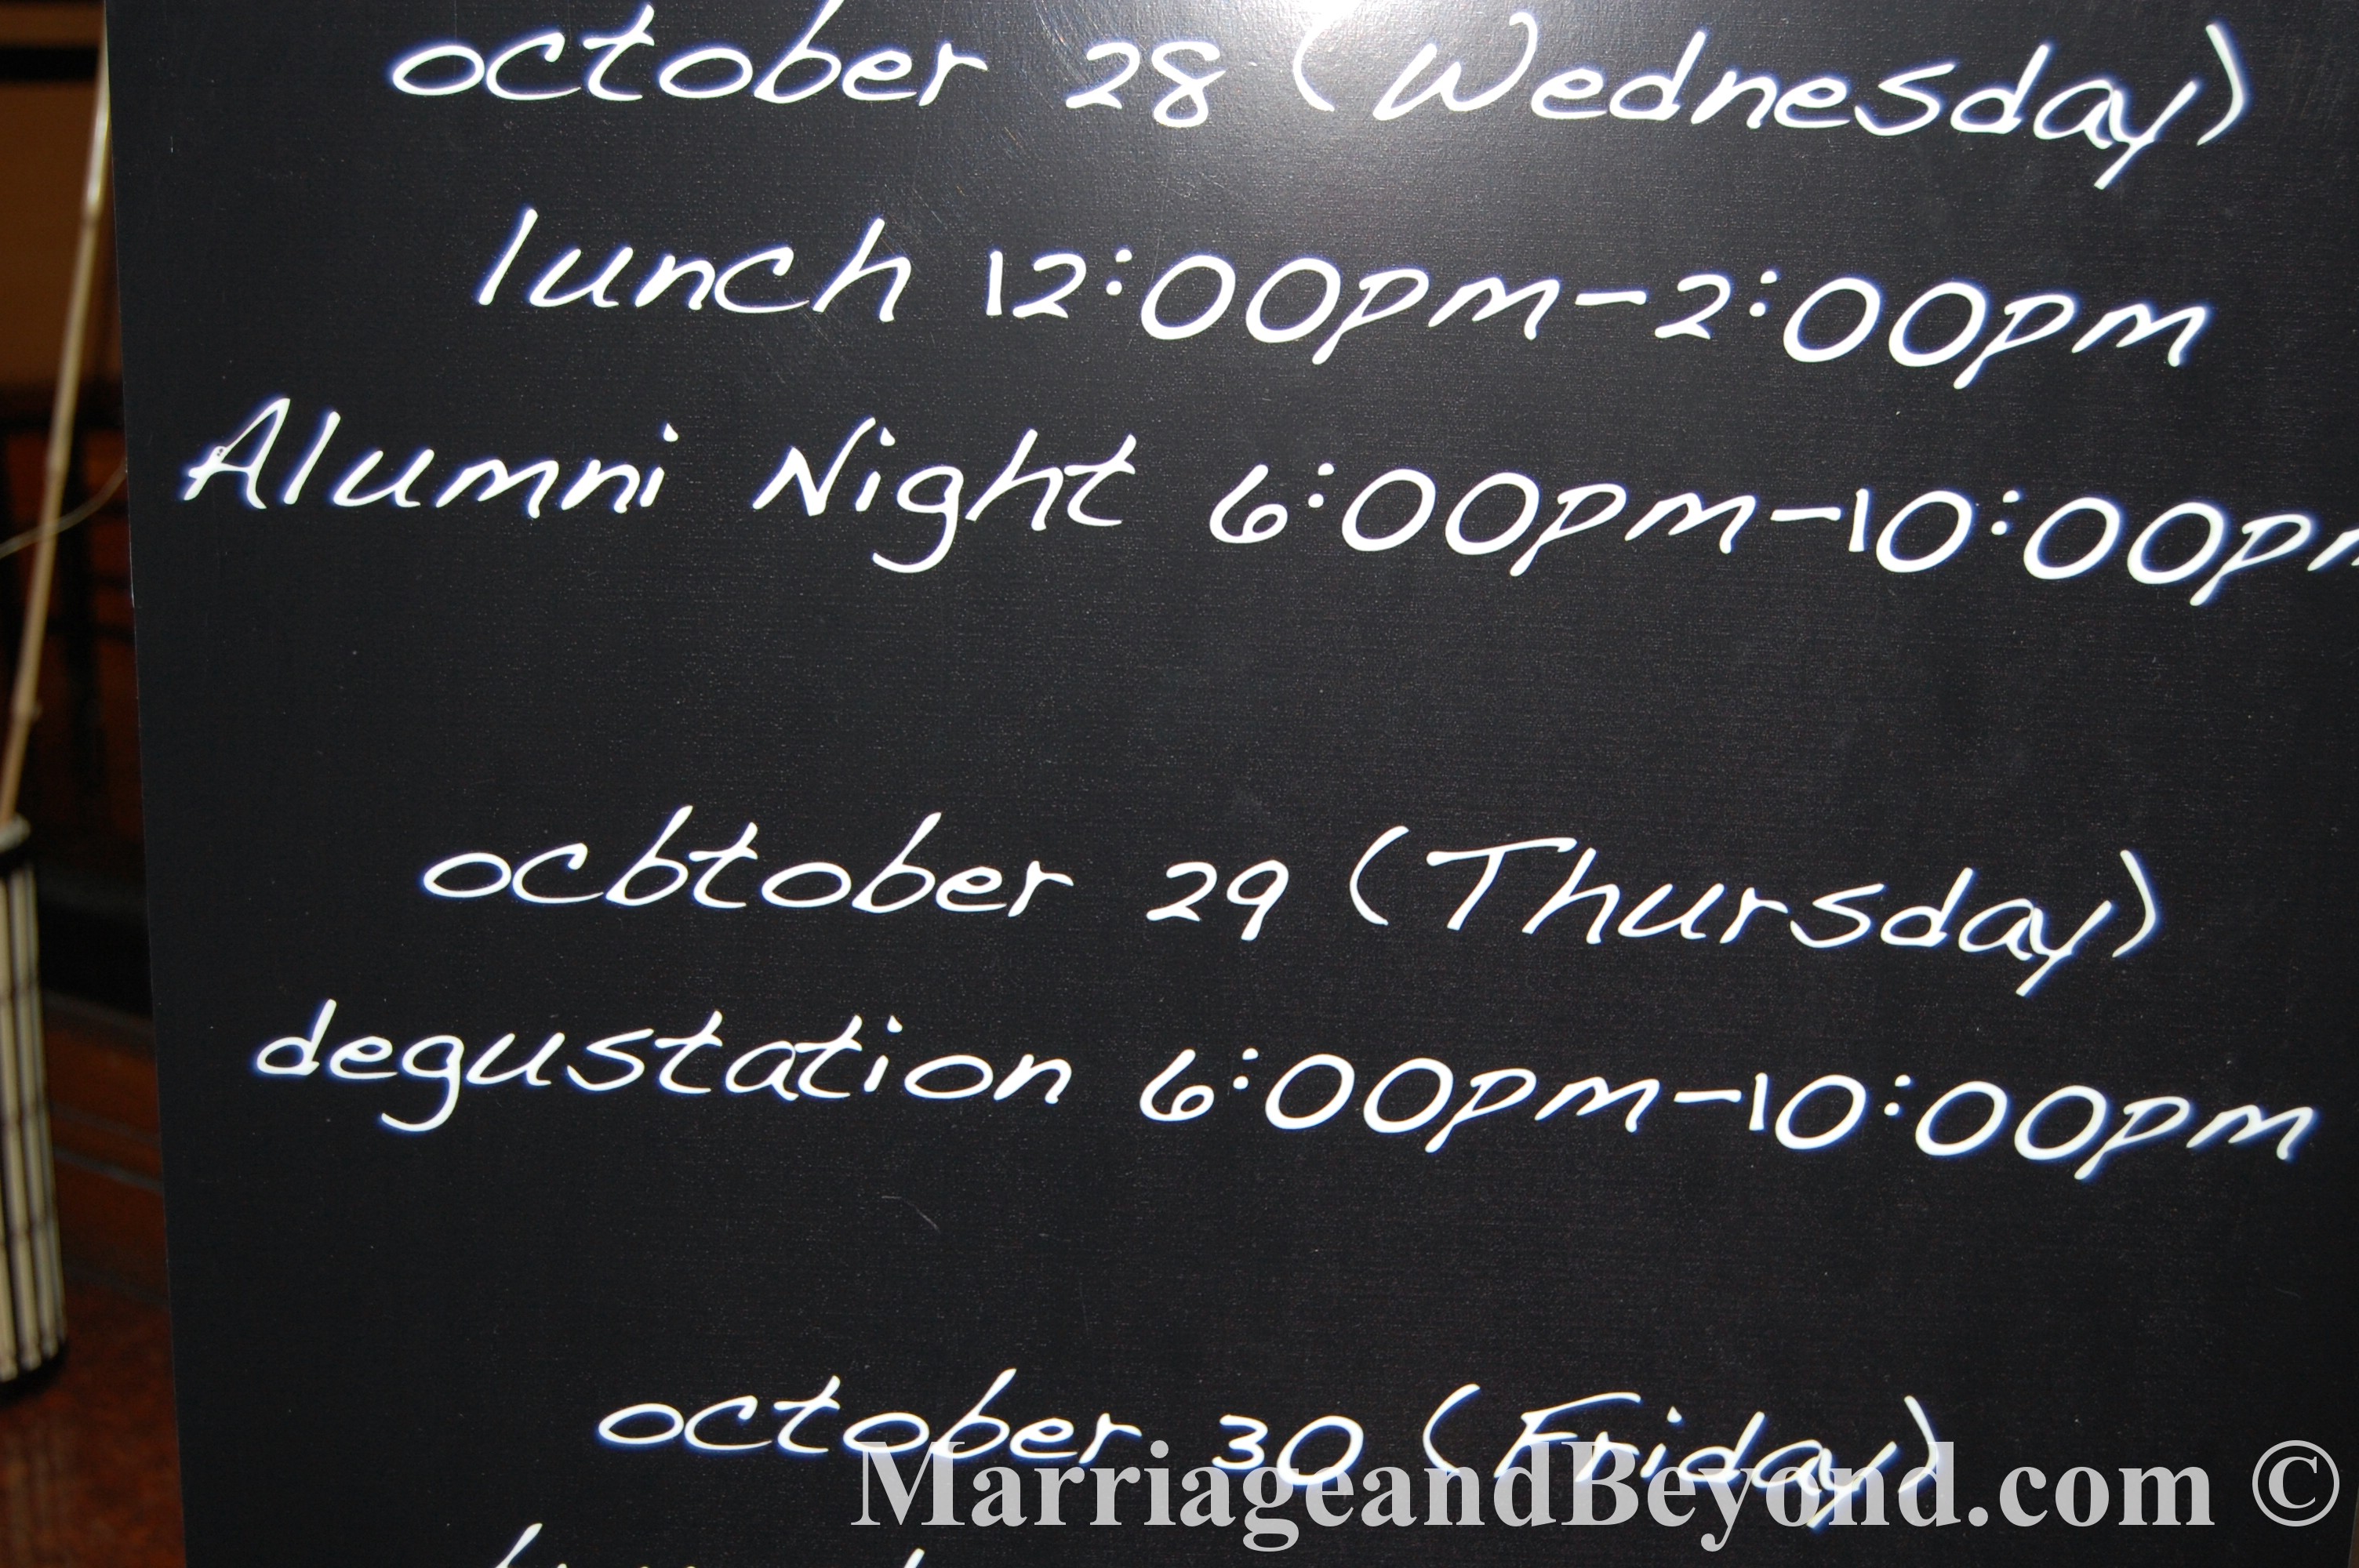 october 28 (Wednesday)
lunch 12:00pm-2:00pm
Alumni Night 6:00pm-10:00pm
ocbtober 29 (Thursday)
degustation 6:00pm-10:00pm
october 30 (Friday)
MarriageandBeyond.com ©